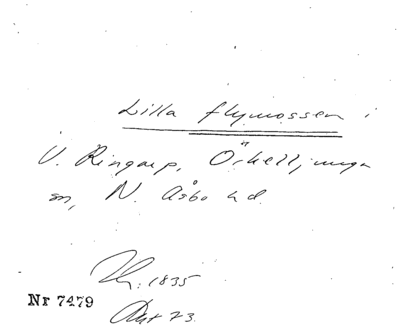 Lilla flymossen i
V. Ringarp, Örkelljunga
sn, N. Åsbo hd.
1835
Nr 7479
Akt 73.